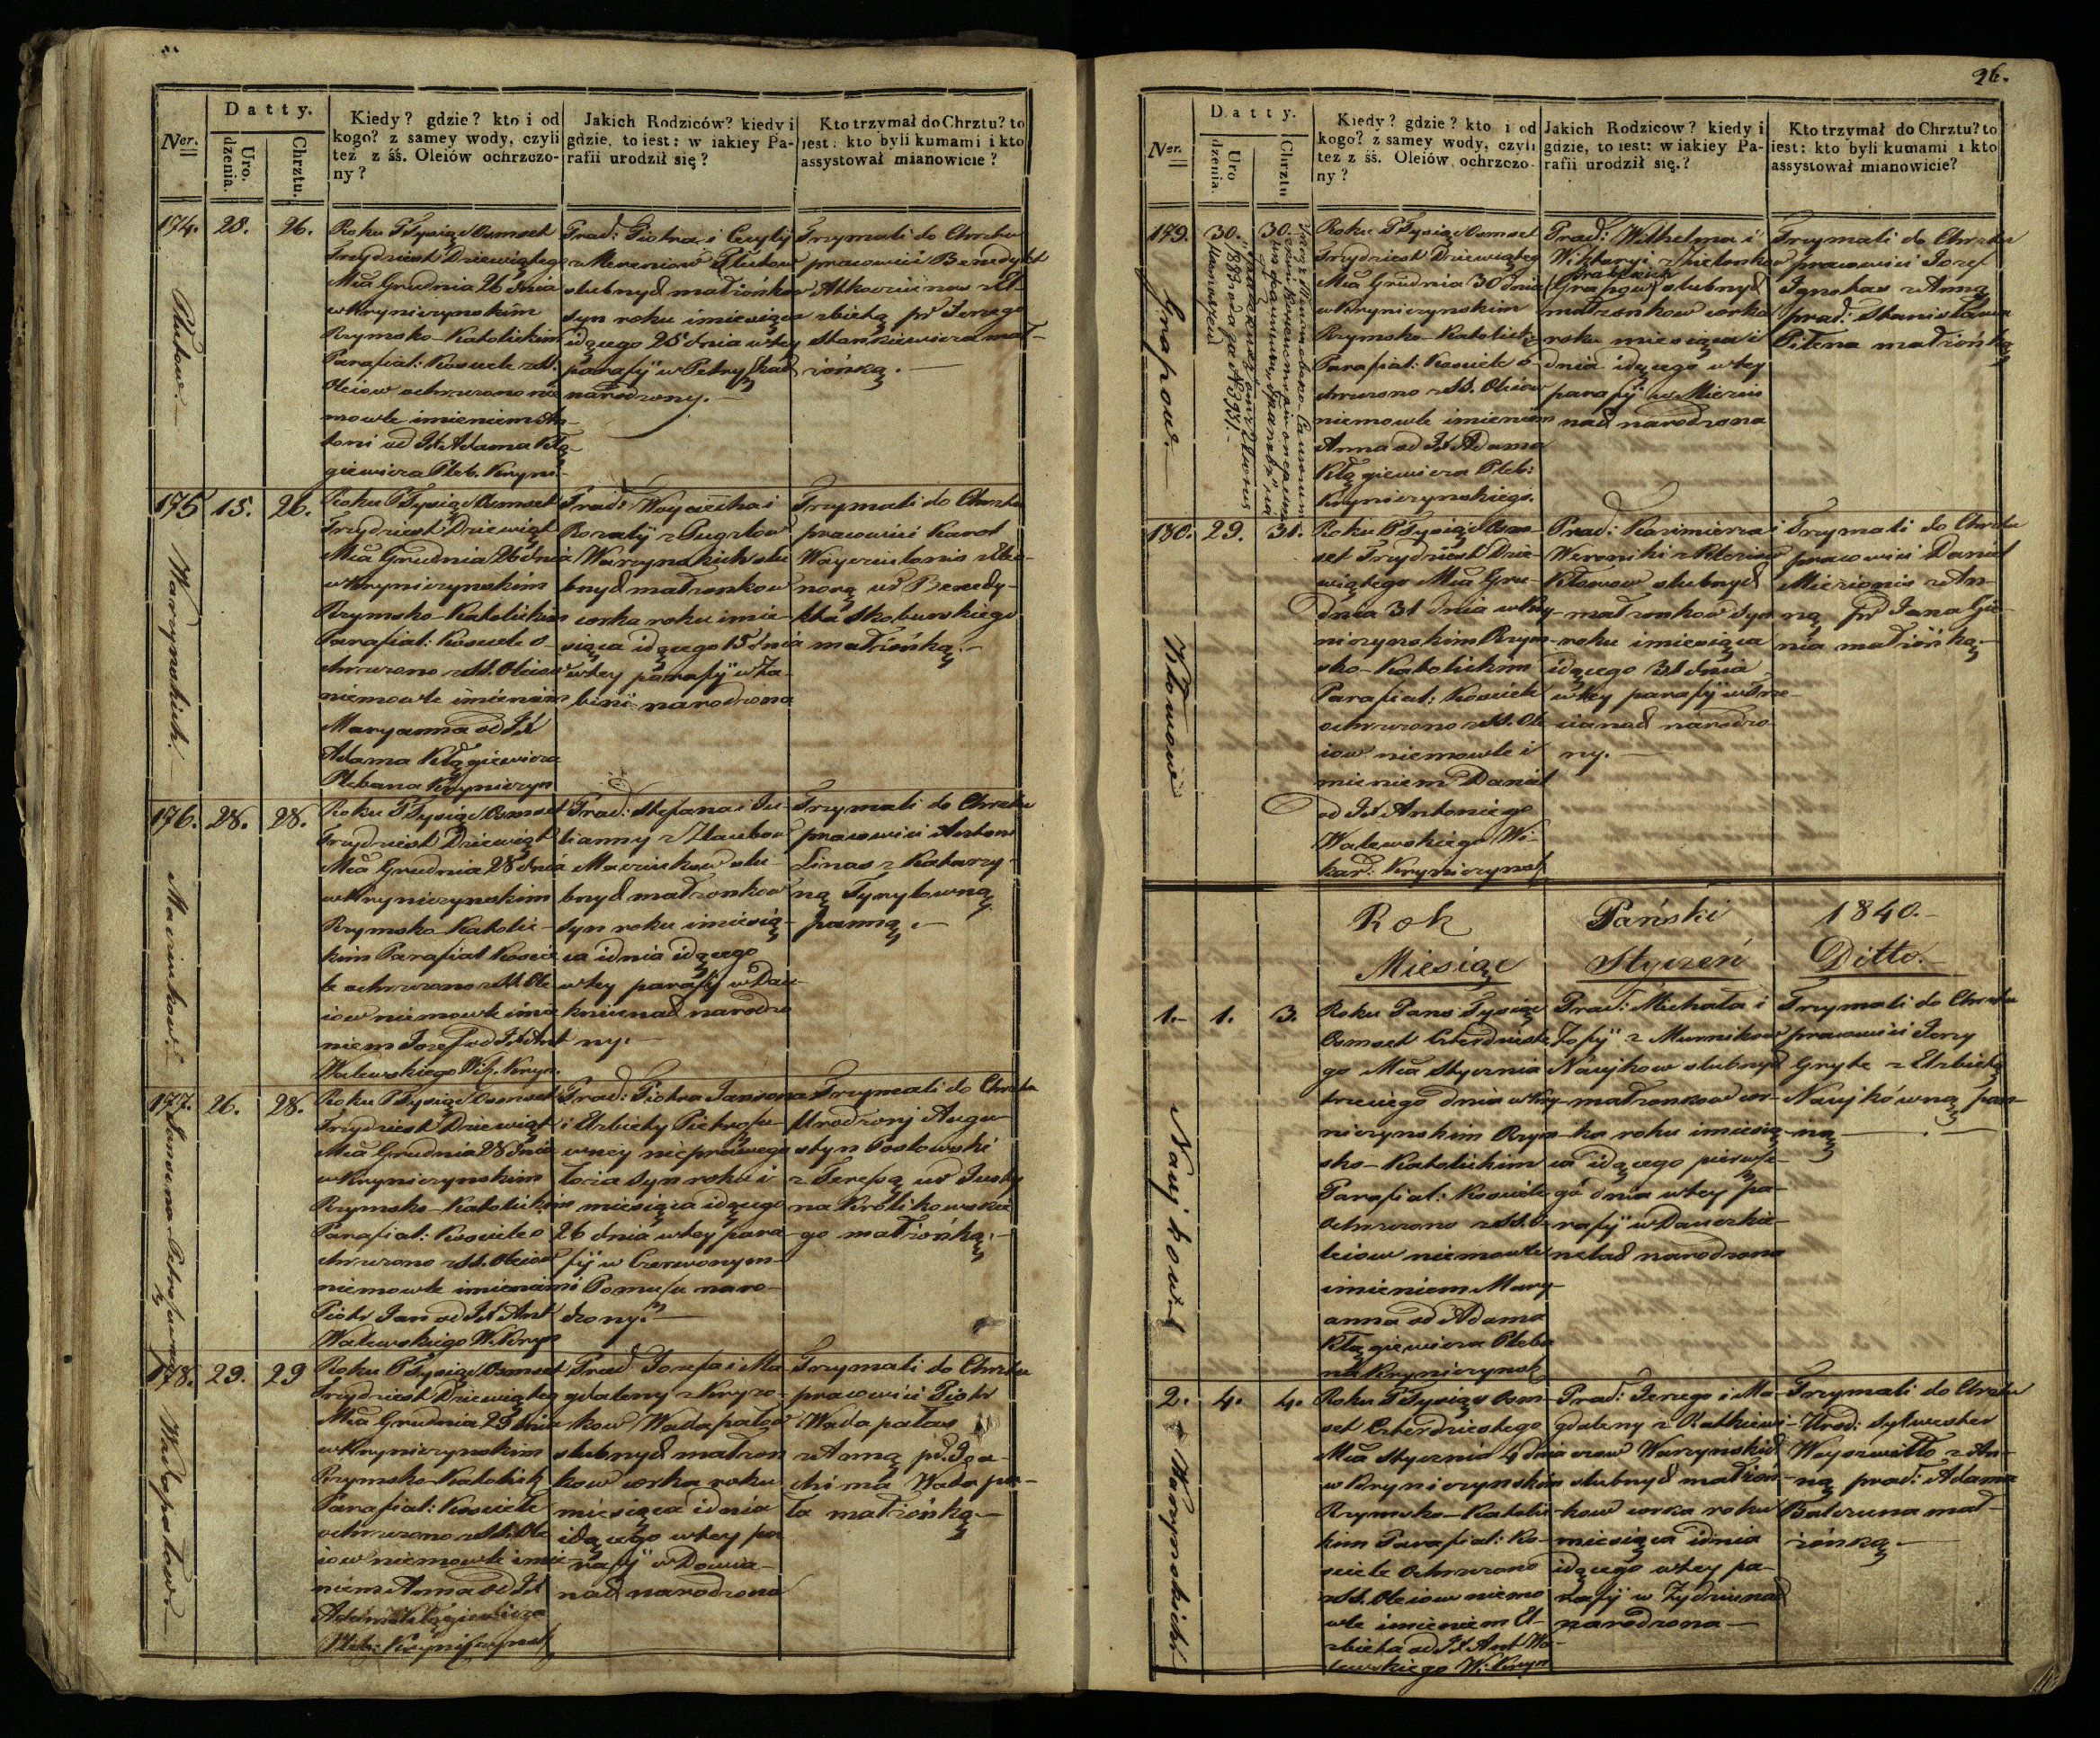 Ner.
Datty.
Uro.
dzenia.
Chrztu.
Kiedy? gdzie? kto i od
kogo? z samey wody, czyli
też z śś. Oleiów ochrzczo-
ny?
Jakich Rodziców? kiedy i
gdzie, to iest: w iakiey Pa-
rafii urodził się?
Kto trzymał do Chrztu? to
iest: kto byli kumami i kto
assystował mianowicie?
174. 28. 26.
Roku T Tysiąc Osmset
Trzydziest Dziewiątego
Mca Grudnia 26 dnia
w Kryniczynskim
Rzymsko-Katolickim
Parafial: Kosciele z SS.
Oleiow ochrzczono nie
mowle imieniem An-
toni od JX Adama Kłą-
giewicza Pleb. Kryni-
Prad: Piotra i Cecylij
slubnych małżonkow
syn roku i miesiąca
idącego 25 dnia w tey
parafij w Petry
narodzony.
Trzymali do Chrztu
pracowici Benedykt
zbietą pr Jerzego
Stankiewicza mał-
żonką.
175 15. 26.
Warzynskich
Roku T Tysiąc Osmset
Trzydziest Dziewiąt
Mca Grudnia 26 dnia
w Kryniczynskim
Rzymsko-Katolickim
Parafial: Kosciele o-
chrzczono z SS. Oleiow
niemowle imieniem
Maryanna od JX
Adama Kłągiewicza
Plebana Kryniczyn
Prad: Woyciecha i
Rozalij z Pugzlow
Warzynskich slu
bnych małzonkow
corka roku i mie
siąca idącego 15 dnia
w tey parafij w Za-
bini narodzona
Trzymali do Chrztu
pracowici Karol
norą Benedy-
kta Skoburskiego
małżonką.
176. 28. 28.
Macinkow
Roku T Tysiąc Osmset
Trzydziest Dziewiąt
Mca Grudnia 28 dnia
w Kryniczynskim
Rzymsko Katolic-
kim Parafial Koscie
le ochrzczono z SS. Ole
iow niemowle imie
niem Jozef od JX Ant
Walewskiego Wik. Kryn.
Prad: Stefana i Ju-
lianny z Zlaubow
Macinkow slu-
bnych małzonkow
syn roku i miesią-
ca i dnia idącego
w tey parafij w Dau-
knienach narodzo
ny.
Trzymali do Chrztu
pracowici Antoni
Linas z Katarzy-
ną Tyrylowną
panną.
177. 26. 28.
Roku T Tysiąc Osmset
Trzydziest Dziewiąt
Mca Grudnia 28 dnia
w Kryniczynskim
Rzymsko-Katolickim
Parafial: Kosciele o
chrzczono z SS. Oleiow
niemowle imienami
Piotr Jan od JX Ant
Walewskiego W. Kryn
Prad: Piotra Jansona
i Elzbiety Pietrosu-
wney nieprawego
łoza syn roku i
miesiąca idącego
26 dnia w tey para-
fij w Czerwonym
Pomusu naro-
dzony.
Trzymali do Chrztu
Urodzony Augu-
styn Postowski
z Teressą Justy
na Krolikowskie
go małżonką.
178. 29. 29
Wadapałow
Roku T Tysiąc Osmset
Trzydziest Dziewiąteg
Mca Grudnia 29 dnia
w Kryniczynskim
Rzymsko-Katolick
Parafial: Kosciele
ochrzczono z SS. Ole
iow niemowle imie
niem Anna od JX
Adama Kłągiewicza
Pleb: Krynczynsk
Prad Jozefa i Ma
gdaleny z Kryzo-
kow Wadapałow
slubnych małzon
kow corka roku
miesiąca i dnia
idącego w tey pa
rafij w Dowia-
nach narodzona
Trzymali do Chrztu
pracowici Piotr
Wadapałas
z Anną pr Joa-
chima Wadapa-
ła małżonką
26.
Ner.
Datty.
Uro
dzenia.
Chrztu
Kiedy? gdzie? kto i od
kogo? z samey wody, czyli
też z śś. Oleiów ochrzczo-
ny?
Jakich Rodzicow? kiedy i
gdzie, to iest: w iakiey Pa-
rafii urodził się.?
Kto trzymał do Chrztu? to
iest: kto byli kumami i kto
assystował mianowicie?
179. 30. 30.
Grapow.
Roku T Tysiąc Osmset
Trzydziest Dziewiąteg
Mca Grudnia 30 dnia
w Krynierzynskim
Rzymsko-Katolick
Parafial: Kosciele o-
chrzczono z SS. Oleiow
niemowle imieniem
Anna od JX Adama
Kłągiewicza Pleb:
Krynierzynskiego.
Prad: Wilhelma i
Wiktoryi
(Grapow) slubnych
małzonkow corka
roku miesiąca i
dnia idącego w tey
parafij w Miezis
nach narodzona
Trzymali do Chrztu
pracowici Jozef
Ignotas z Anną
prad: Stanisława
Pitena małżonką
180. 29. 31.
Kłowow
Roku T Tysiąc Osm
set Trzydziest Dzie-
wiątego Mca Gru-
dnia 31 dnia w Kry-
nierzynskim Rzym-
sko-Katolickim
Parafial: Kosciele
ochrzczono z SS. Ole
iow niemowle i
mieniem Daniel
od JX Antoniego
Walewskiego Wi-
kar: Krynierzynsk
Prad: Kazimierza i
Weroniki
Kłowow slubnych
małzonkow syn
roku i miesiąca
idącego 31 dnia
w tey parafij w
cianach narodzo
ny.
Trzymali do Chrztu
pracowici Daniel
Miezionis z An-
ną pr Jana Gie-
nia małżonką.
Rok Pański 1840.
Miesiąc Styczeń Ditto.
1. 1. 3.
Naujkow
Roku Pans Tysiąc
Osmset Czterdzieste
go Mca Stycznia
trzeciego dnia w Kry-
nierzynskim Rzym-
sko-Katolickim
Parafial: Kosciele
ochrzczono z SS. O-
leiow niemowle
imieniem Mary-
anna od Adama
Kłągiewicza Pleba
na Krynierzynsk
Prad: Michała i
Zofij z Murnikow
Naujkow slubnych
małzonkow cor-
ka roku i miesią-
ca idącego pierwsze-
go dnia w tey pa-
rafij w Dauczkie-
nelach narodzona
Trzymali do Chrztu
pracowici Jerzy
Gryte z Elzbietą
Naujkówną pan-
ną
2. 4. 4.
Warzynskich
Roku T Tysiąc Osm-
set Czterdziestego
Mca Stycznia 4 dnia
w Krynierzynskim
Rzymsko-Katolic-
kim Parafial: Ko-
sciele ochrzczono
z SS. Oleiow niemo
wle imieniem El-
zbieta od JX Ant Wa-
lewskiego W: Kryn
Prad: Jerzego i Ma-
gdaleny z Ratkiewi-
czow Warzynskich
slubnych małżon-
kow corka roku
miesiąca i dnia
idącego w tey pa-
rafij w Zydziunach
narodzona
Trzymali do Chrztu
Urod: Sylwester
Woyszwiłło z An-
ną prad: Adama
Balczuna mał-
żonką